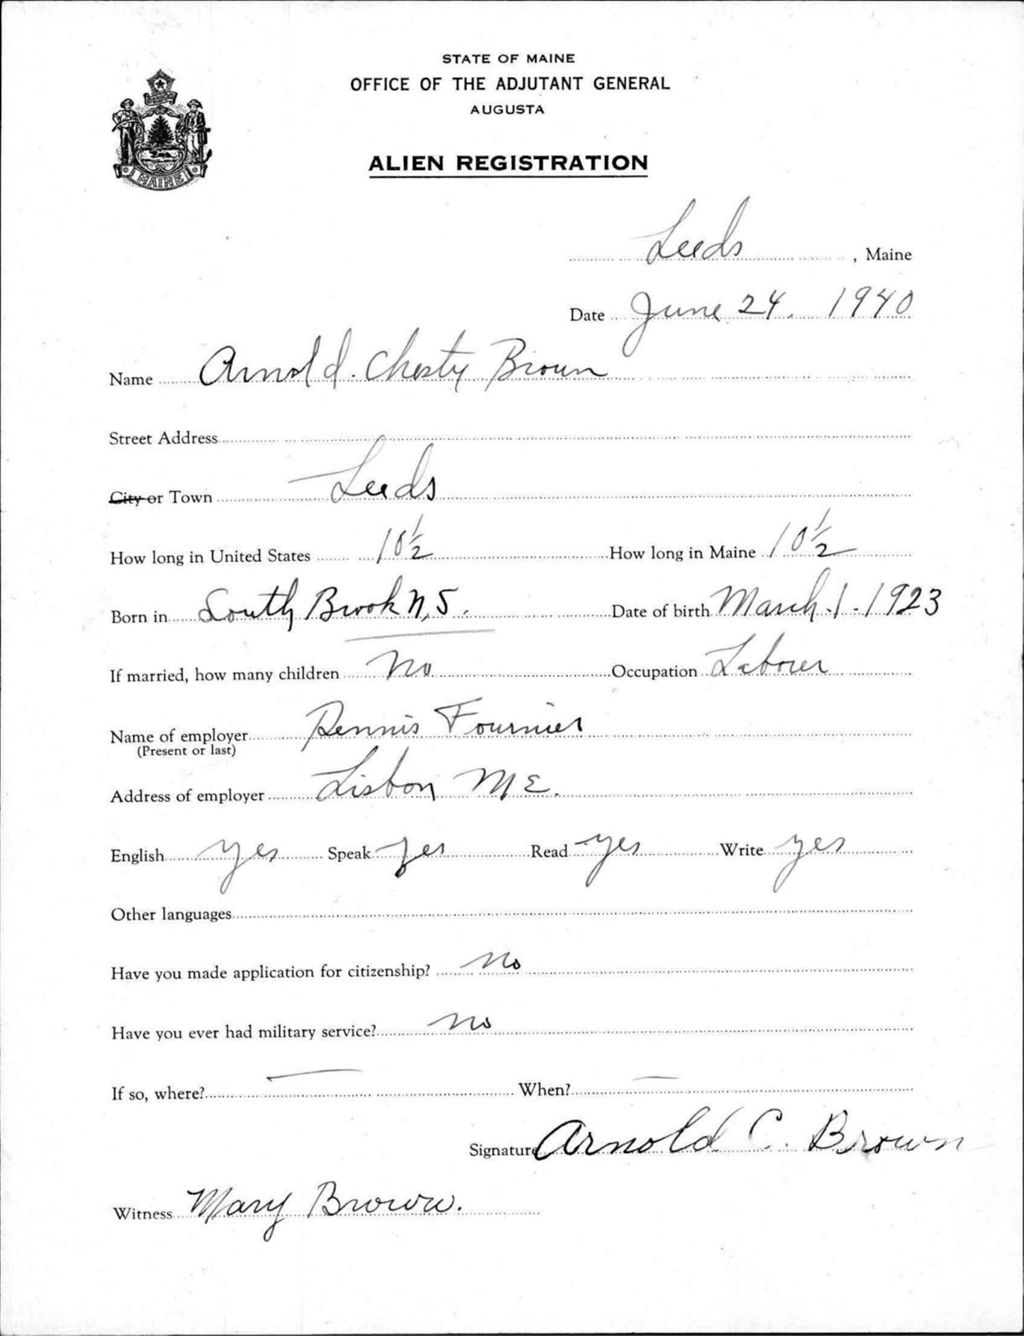 STATE OF MAINE
OFFICE OF THE ADJUTANT GENERAL
AUGUSTA
ALIEN REGISTRATION
MAINE
Leeds, Maine
Date June 24. 1940
Name Arnold. Chesty Brown
Street Address
City or Town Leeds
How long in United States 10 1/2 How long in Maine 10 1/2
Born in South Brook N,S. Date of birth March.1.1923
If married, how many children No Occupation Laborer
Name of employer Dennis Fournier
(Present or last)
Address of employer Lisbon ME.
English yes Speak yes Read yes Write yes
Other languages
Have you made application for citizenship? No
Have you ever had military service? No
If so, where? — When? —
Signature Arnold C. Brown
Witness Mary Brown.